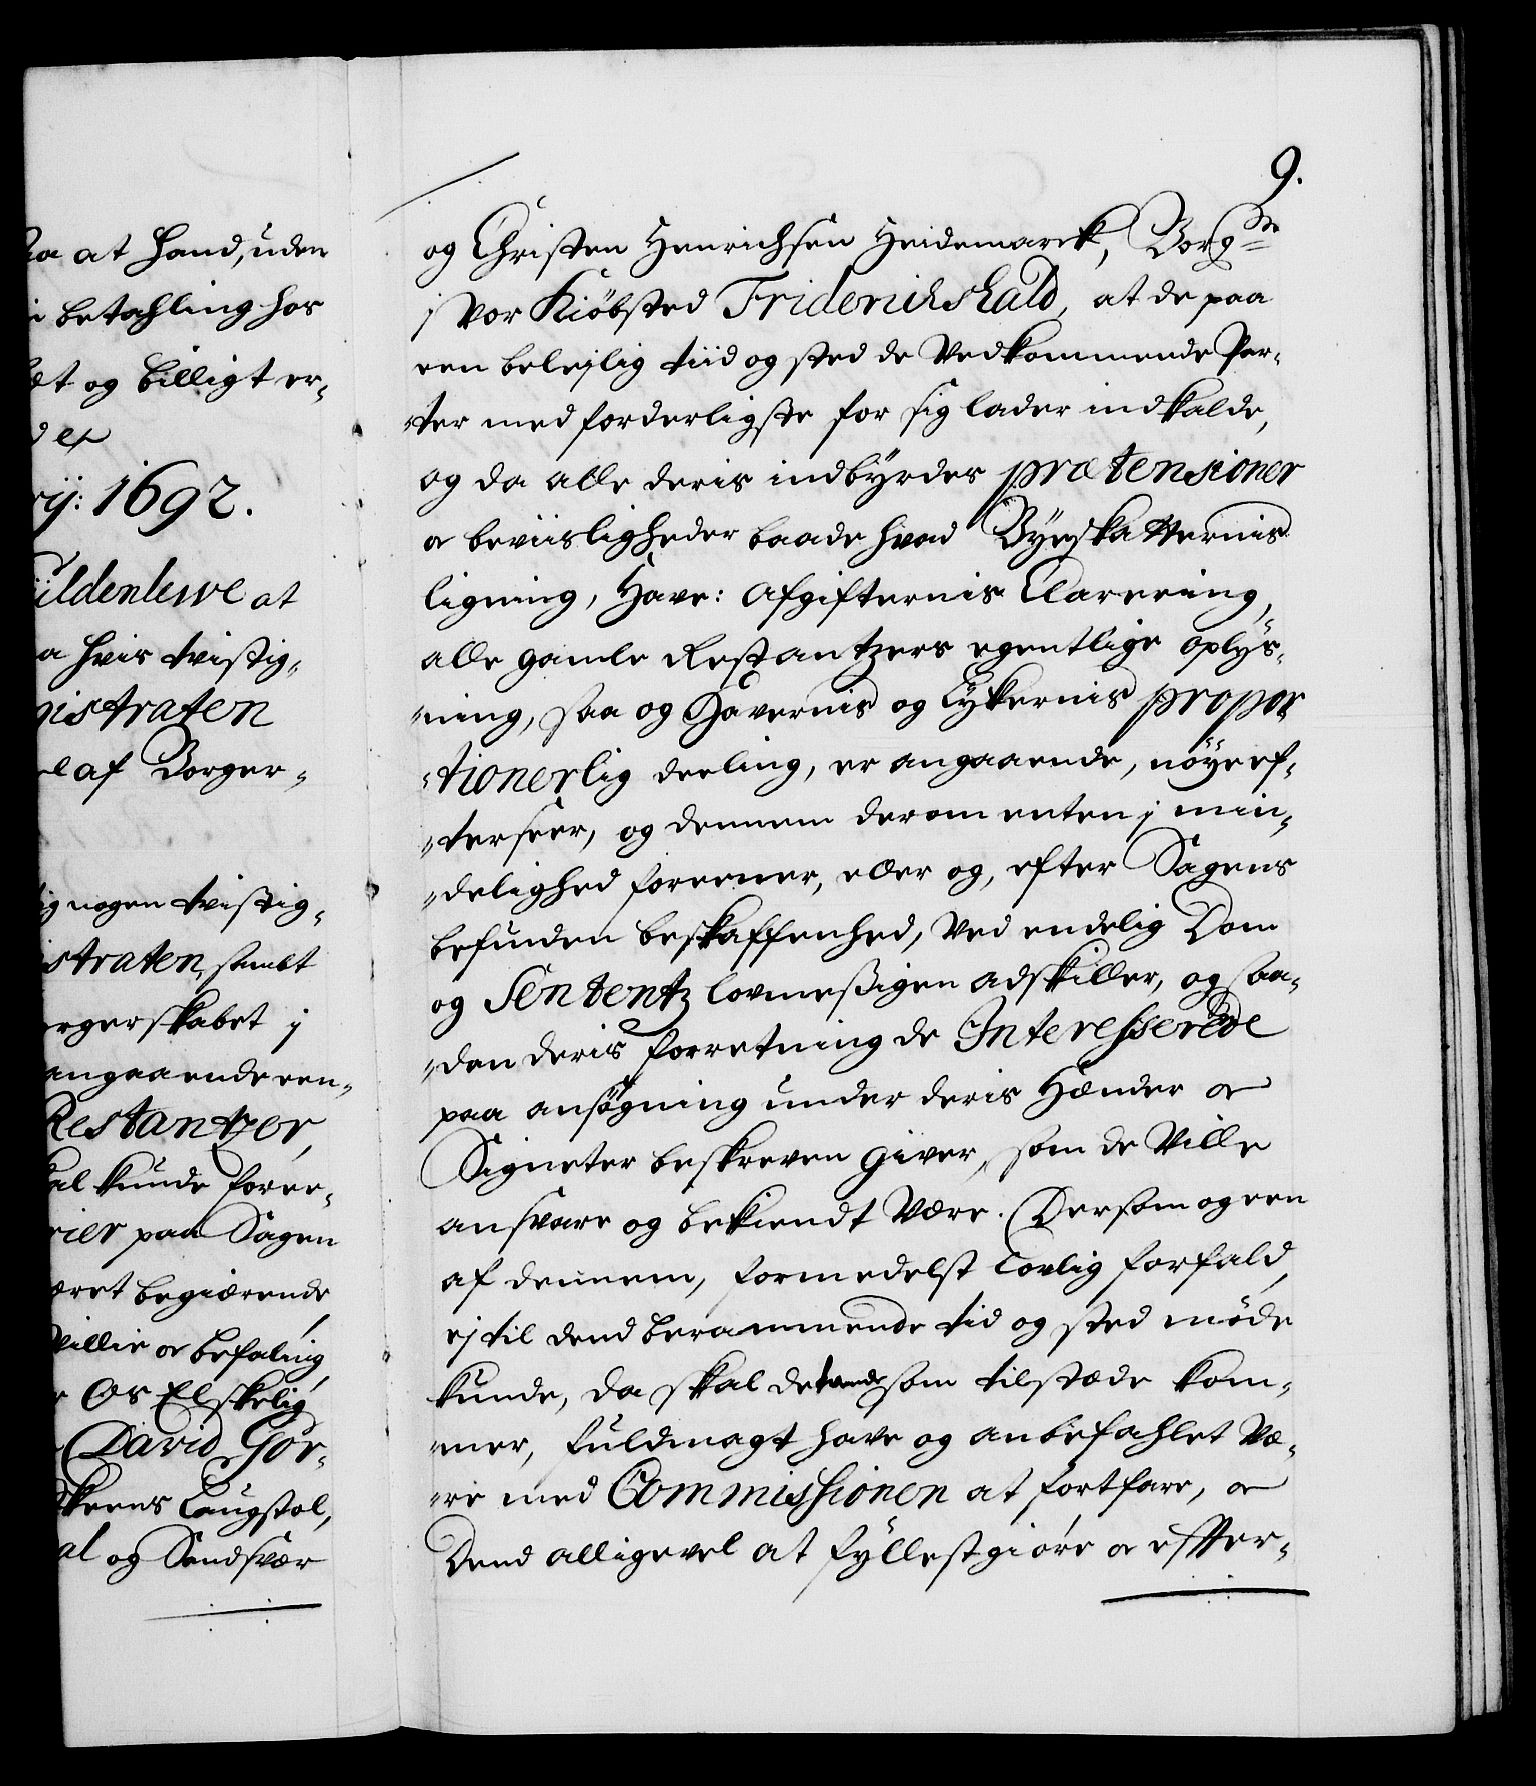 aa at haand, uden
i betahling hos
et og billigt er-
d ex
rij: 1692.
üldenlewe at
a hvis tvistig-
gistraten
el af Borger-
ig nogen tvistig-
istraten, sambt
orgerskabet j
angaaende een-
Restantzer,
al kunde foree-
rier paa Sagen
æret begiærende
Villie oc befaling
r Os Elskelig
David Gør-
skeens Laugstol,
al og Sandsvær
9.
og Christen Henrichsen Heidemarck, Borg
j vor Kiøbsted Friderichshald, at de paa
een beleylig tiid og sted de Vedkommende Par-
-ter med forderligste for sig lader indkalde,
og da alle deris indbyrdes prætensioner
oc beviisligheder baade hvad Byeskatternis
ligning, Have: Afgifternis Clareering,
alle gamle Restantzers egentlige oplys-
-ning, saa og Havernis og Lykernis propor
-tionerlig deeling, er angaaende, nøye ef-
-terseer, og dennem derom enten j min-
-delighed foreener, eller og, efter Sagens
befunden beskaffenhed, Ved endelig Dom
og Sententz lovmessigen adskiller, og saa-
-dan deris forretning de Interesserede
paa ansøgning under deris Hænder oc
Signeter beskreven giver, som de Ville
ansvare og bekiendt Være. Dersom og een
af dennem, formedelst Lovlig forfald,
ej til dend berammende tid og sted møde
kunde, da skal de som tilstæde kom-
-mer, fuldmagt have og anbefahlet Væ-
-re med Commissionen at fortfare, oc
Dend alligevel at fyllestgiøre oc effter-